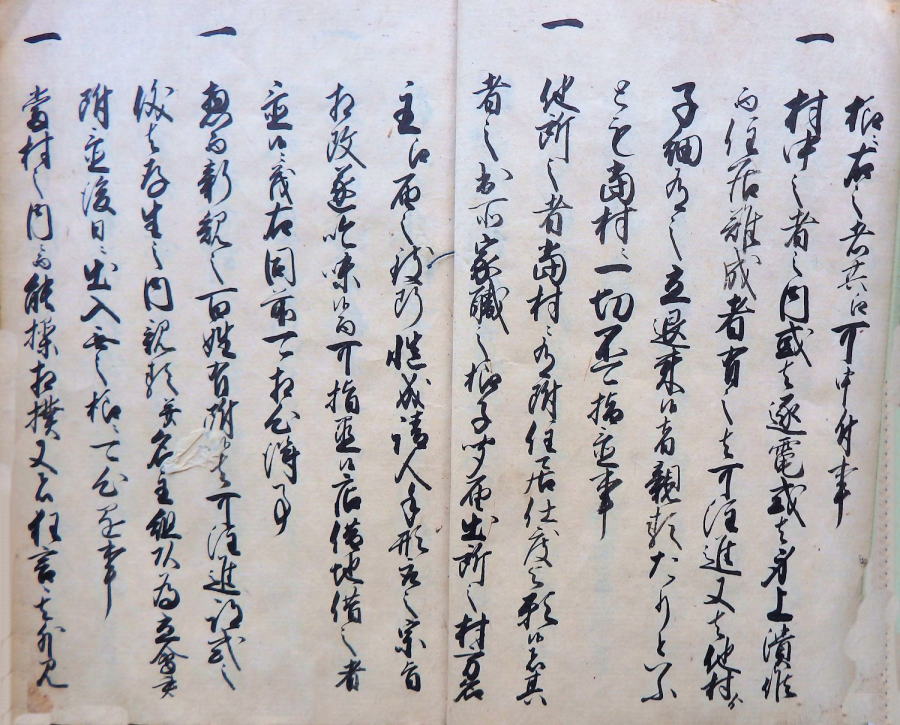 様ニ右之者共江可申付事
一 村中之者之内或者逐電或者身上潰候
而住居難成者有之者可注進又者他村ゟ
子細有之立退来候者親類たりといふ
とも当村ニ一切不可指置事
一 他所之者当村ニ有附住居仕度与願候者其
者之出所家職之様子承届出所之村方名
主江届之致判慥成請人手形取之宗旨
相改遂吟味候而可指置候店借地借之者
置候儀右同前可相心得事
一 惣而新規之百姓有附者可注進譲式之
儀者存生之内親類并名主組頭為立会書
附置後日ニ出入無之様ニ可心得事
一 当村之内ニ而能操相撲又者狂言其外見